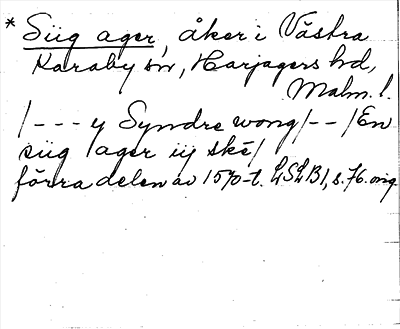 * Siig ager, åker i Västra
Karaby sn, Harjagers hd,
Malm. l.
/--- y Syndre wong/--/En
siig ager iij ske/
förra delen av 1570-t. LSLB1, s. 76. orig.